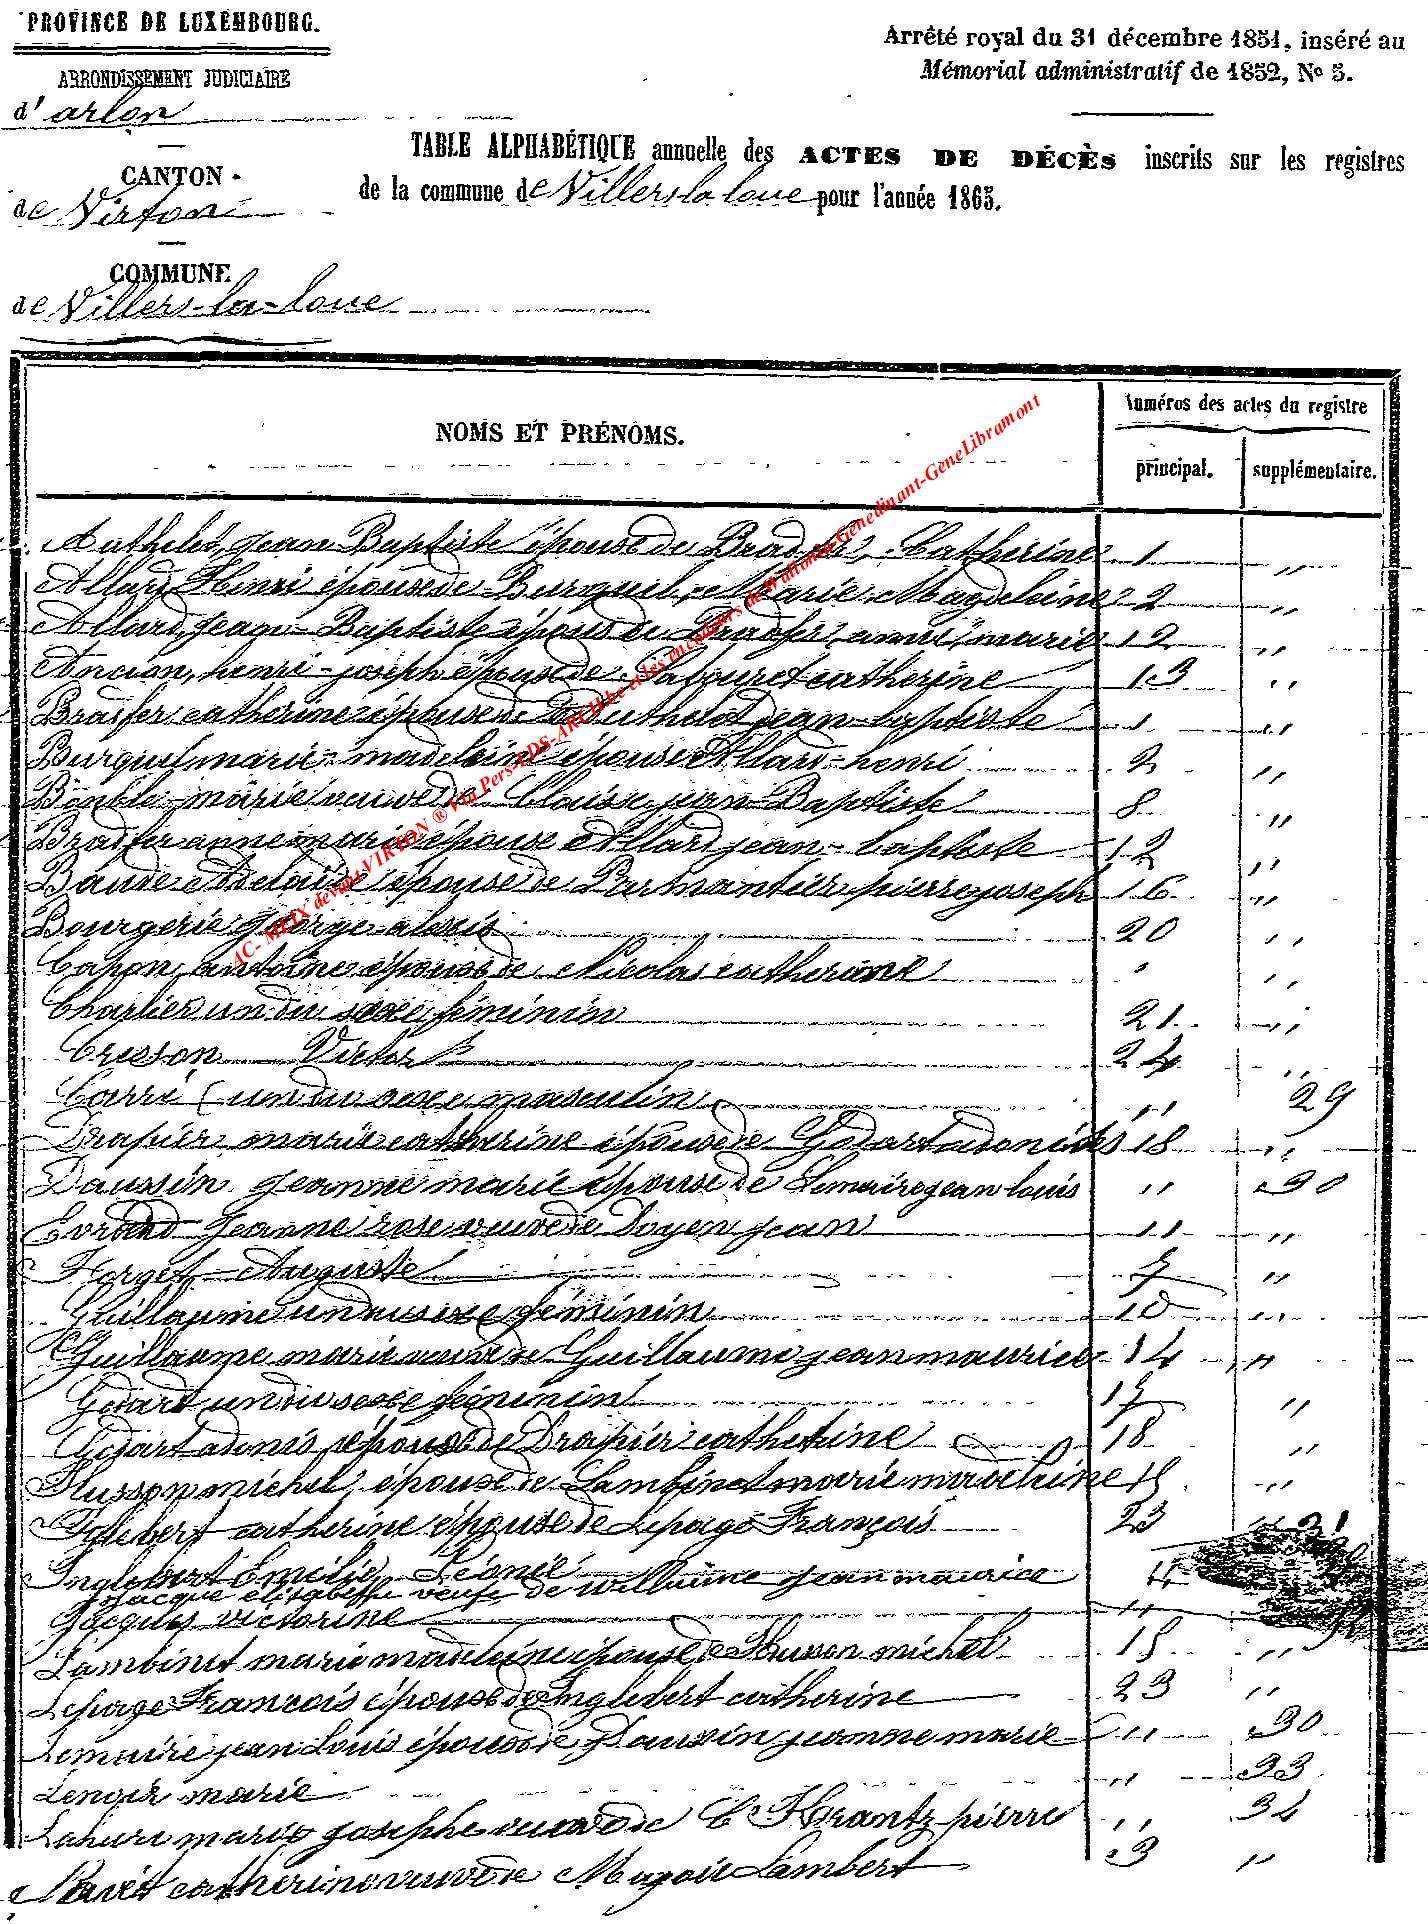 PROVINCE DE LUXEMBOURG.
ARRONDISSEMENT JUDICIAIRE
d'arlon
CANTON
de Virton
COMMUNE
de Villers-la-loue
Arrêté royal du 31 décembre 1851, inséré au
Mémorial administratif de 1852, No 5.
TABLE ALPHABÉTIQUE annuelle des ACTES DE DÉCÈS inscrits sur les registres
de la commune de Villers-la-loue pour l'année 1865.
NOMS ET PRÉNOMS.
Numéros des actes du registre
principal. supplémentaire.
Authelet, Jean Baptiste épouse de Bradfer, Catherine 1 "
Allard Henri épouse de Burquel, Marie Magdeleine 2 "
Allard, Jean-Baptiste épous de Bradfer anne marie 12 "
Ancian, henri-joseph épouse de catherine 13 "
Bradfer catherine épouse de Authelot jean-baptiste 1 "
Burquel marie-madeleine épouse Allard-henri 2 "
marie veuve de Claisse jean-Baptiste 8 "
Bradfer anne marie épouse Allard jean-baptiste 12 "
Baude Adelaide épouse de Parmantier pierre joseph 16 "
Bourgerie george alexis 20 "
Capon, antoine épouse de Nicolas catherine " "
Charlier un du sexe féminin 21 "
Cresson Victor 24 "
Carré (un du sexe masculin " 29
Drapier marie catherine épouse de Godart adonis 18 "
Daussin jeanne marie épouse de Lemaire jean louis " 30
Evrard Jeanne rose veuve de Doyen jean " "
Forget Auguste 7 "
Guillaume un du sexe féminin 10 "
Guillaume marie veuve de Guillaume jean maurice 14 "
Godart un du sexe féminin 17 "
Godart adonis épouse de Drapier catherine 18 "
Husson michel épouse de Lambinet marie madeleine 15 "
catherine épouse de Lepage François 23 "
Inglebert Emélie Léonie 31
Jacque veuve de Willaume jean maurice
Jacques victorine "
Lambinet marie madeleine épouse de Husson michel 15 "
Lepage François épouse de Inglebert catherine 23 "
Lemaire jean Louis épouse de Daussin jeanne marie " 30
Lenoir marie " 33
marie josephe veuve de pierre " 34
catherine veuve de Lambert 3 "
AC- MEIX devant VIRTON ® Via Pers-PDS-ARCH.be et les encodeurs de Wallonia-Genedinant-GeneLibramont